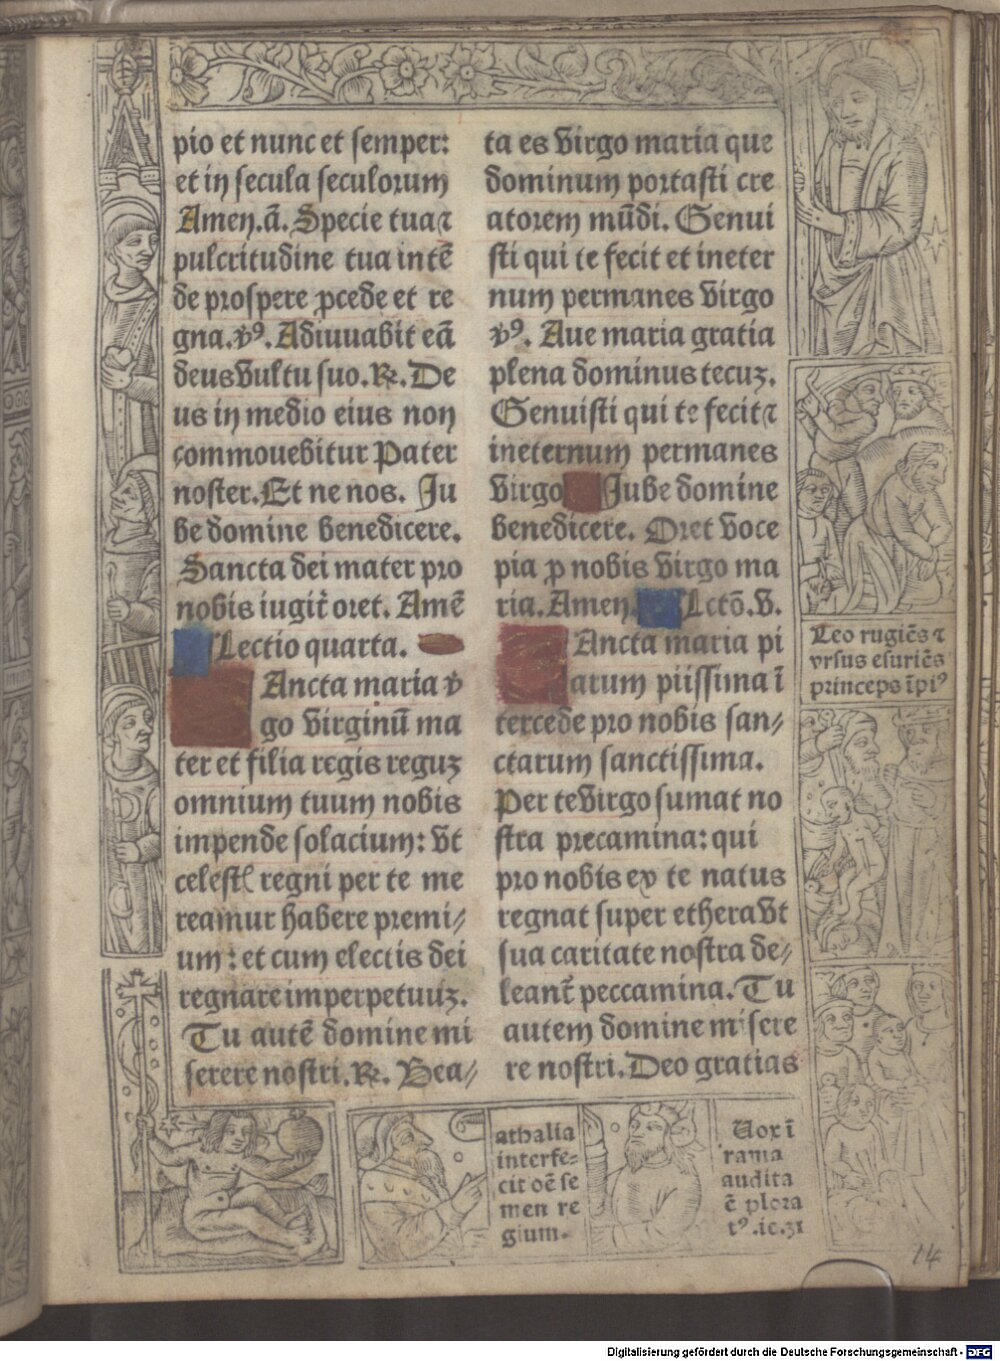 pio et nunc et semper:
et in secula seculorum
Amen.ā. Specie tua⁊
pulcritudine tua intē
de prospere ꝓcede et re
gna.vꝰ. Adiuuabit eā
deus vultu suo.℟. De
us in medio eius non
commouebitur Pater
noster. Et ne nos. Ju
be domine benedicere.
Sancta dei mater pro
nobis iugit̄ oret. Amē
Lectio quarta.
Ancta maria v̄
go virginū ma
ter et filia regis reguꝫ
omnium tuum nobis
impende solacium: vt
celestꝭ regni per te me
reamur habere premi/
um: et cum electis dei
regnare imperpetuuꝫ.
Tu autē domine mi
serere nostri.℟. Bea/
ta es virgo maria que
dominum portasti cre
atorem mūdi. Genui
sti qui te fecit et ineter
num permanes virgo
vꝰ. Aue maria gratia
plena dominus tecuꝫ.
Genuisti qui te fecit⁊
ineternum permanes
virgo Jube domine
benedicere. Oret voce
pia ꝓ nobis virgo ma
ria. Amen. Lctō.v.
Ancta maria pi
arum piissima ī
tercede pro nobis san/
ctarum sanctissima.
Per te virgo sumat no
stra precamina: qui
pro nobis ex te natus
regnat super ethera vt
sua caritate nostra de/
leant̄ peccamina. Tu
autem domine misere
re nostri. Deo gratias
Leo rugiēs ⁊
vrsus esuriēs
princeps īpiꝰ
athalia
interfe=
cit oē se
men re
gium.
Uox ī
rama
audita
ē plora
tꝰ.ie.31
14
Digitalisierung gefördert durch die Deutsche Forschungsgemeinschaft - DFG